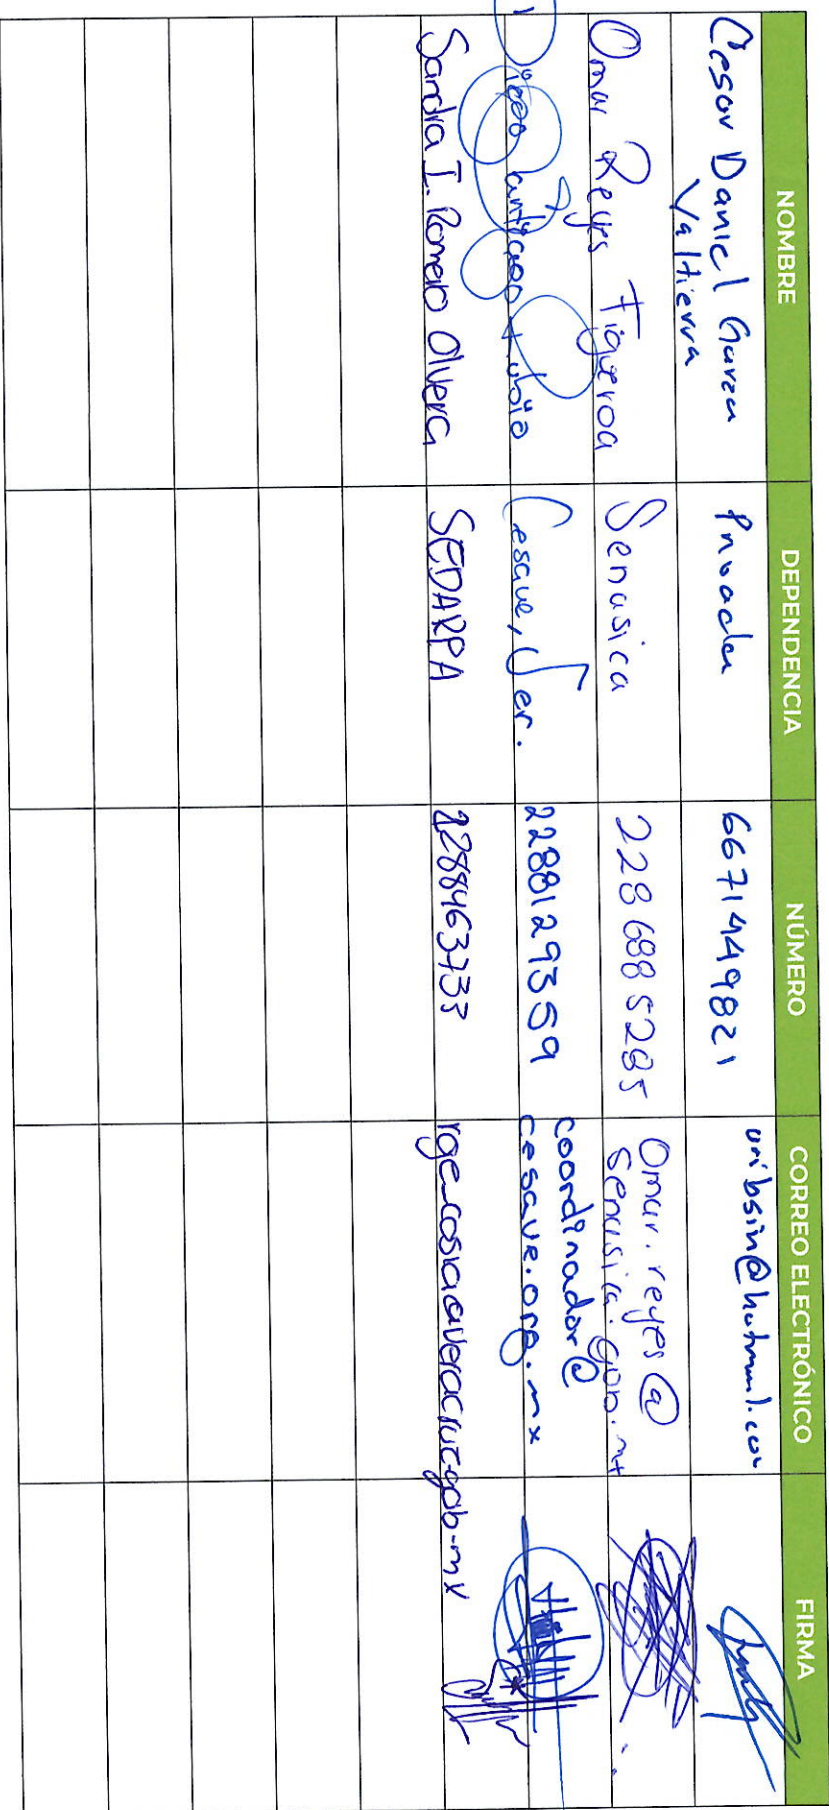 NOMBRE DEPENDENCIA NÚMERO CORREO ELECTRÓNICO FIRMA
Cesar Daniel Garza Valtierra Privada 6671449821 unibsin@hotmail.com
Omar Reyes Figueroa Senasica 2286885285 Omar.reyes@senasica.gob.mx
Diego Cesave, Ver. 2288129359 coordinador@cesave.org.mx
Sandra I. Romero Olvera SEDARPA 2288463733